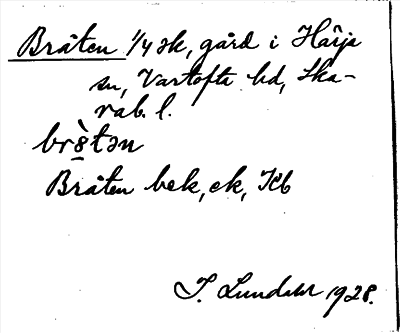 Bråten 1/4 sk, gård i Härja
sn, Vartofta hd, Ska-
rab. l.
brὸ̱tən
Bråten bek, ek, Kb
I. Lundahl 1928.